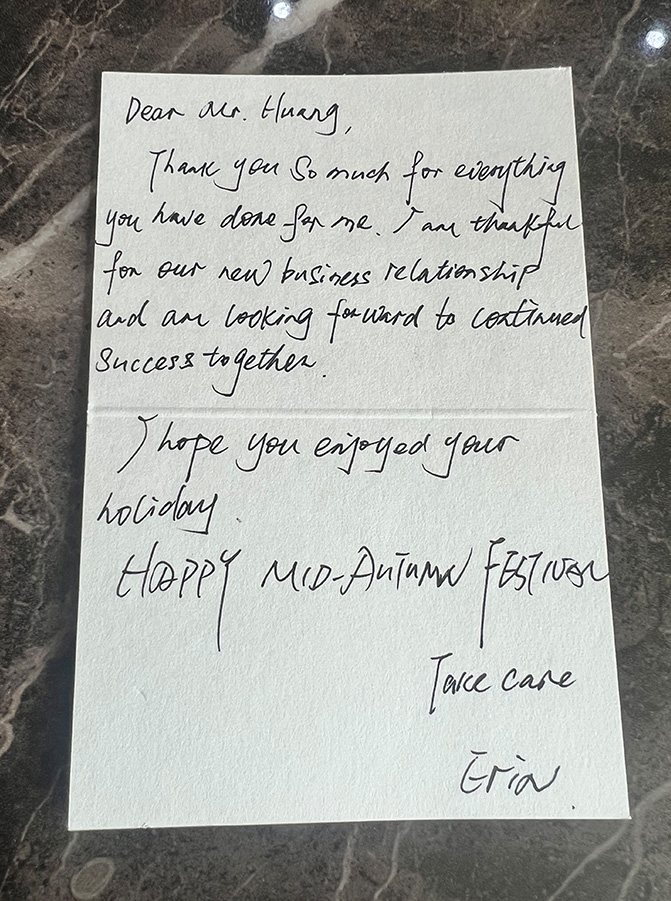 Dear Mr. Huang,
Thank you so much for everything
you have done for me. I am thankful
for our new business relationship
and am looking forward to continued
success together.
I hope you enjoyed your
holiday.
HAPPY MID-AUTUMN FESTIVAL
Take care
Erin.